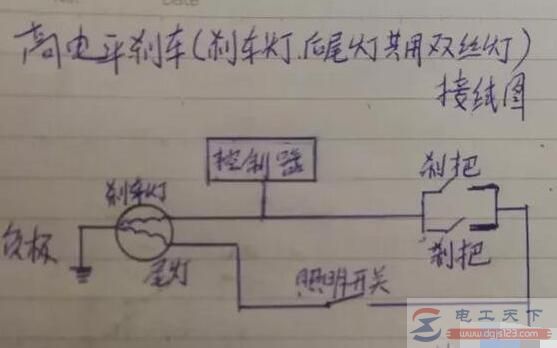 高电平刹车(刹车灯、后尾灯共用双丝灯)
接线图
控制器
刹把
刹车灯
负极
刹把
尾灯
照明开关
电工天下
www.dgjs123.com